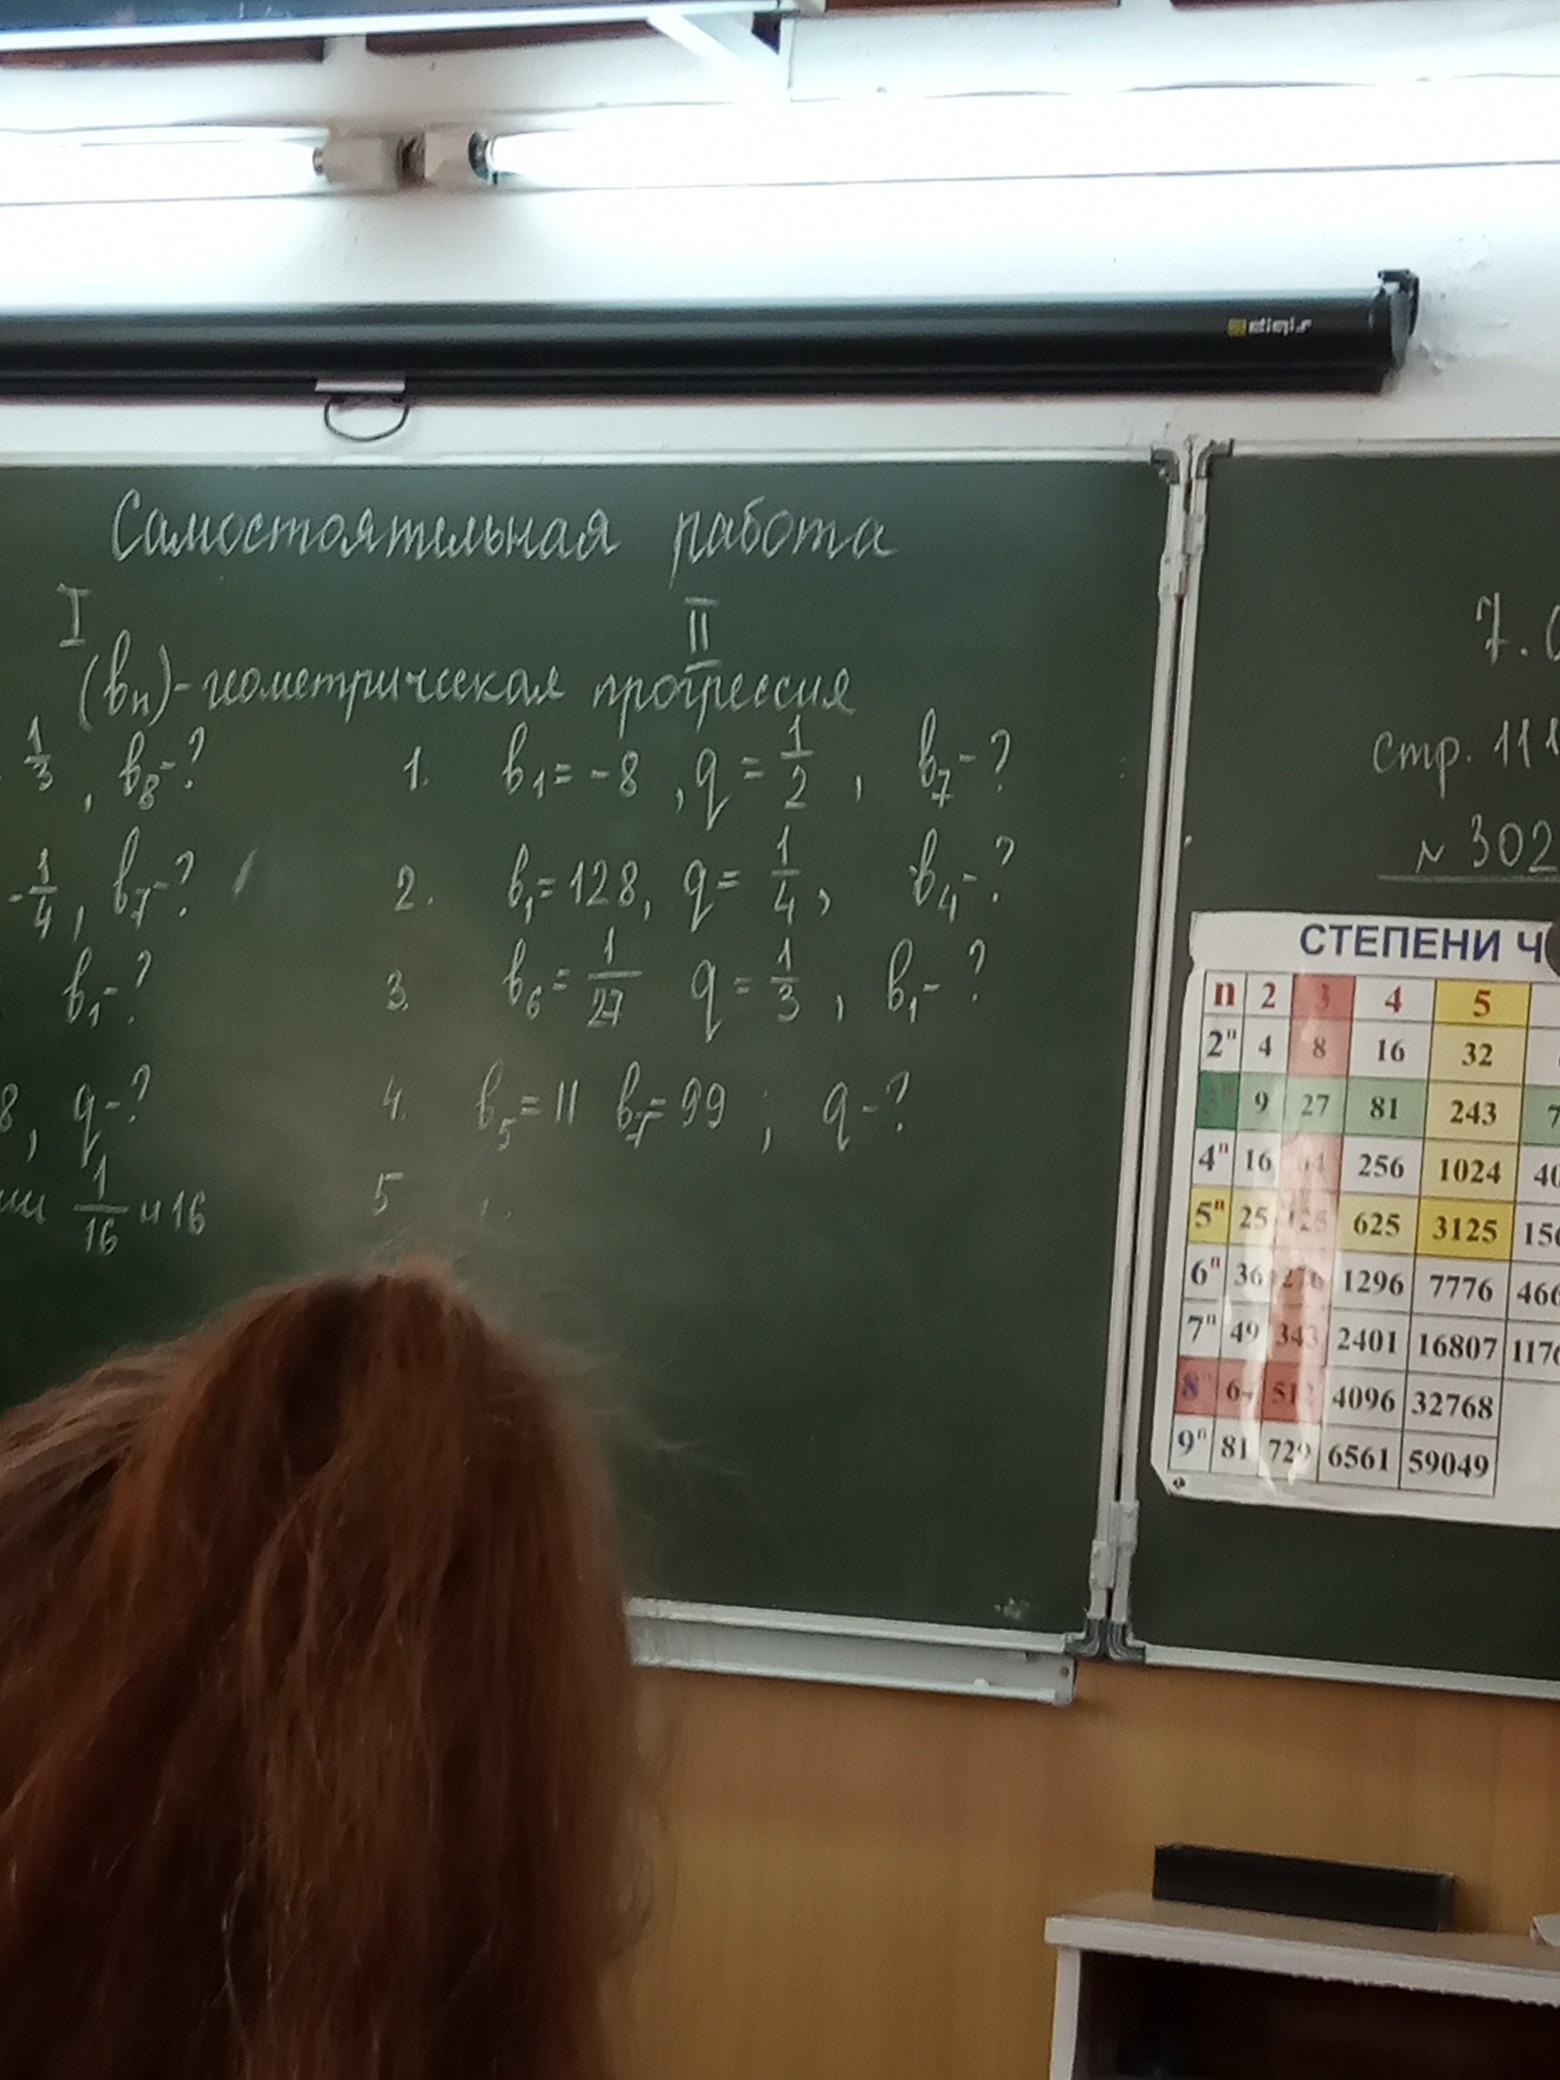 digis
Самостоятельная работа
I II
(bₙ)-геометрическая прогрессия
1/3, b₈-?
-1/4, b₇-?
b₁-?
8, q-?
1/16 и 16
1. b₁=-8, q=1/2, b₇-?
2. b₁=128, q=1/4, b₄-?
3. b₆=1/27 q=1/3, b₁-?
4. b₅=11 b₇=99; q-?
5
7.0
стр. 111
№302
СТЕПЕНИ Ч
n 2 3 4 5
2ⁿ 4 8 16 32
3ⁿ 9 27 81 243 7
4ⁿ 16 64 256 1024 40
5ⁿ 25 125 625 3125 156
6ⁿ 36 216 1296 7776 466
7ⁿ 49 343 2401 16807 1176
8ⁿ 64 512 4096 32768
9ⁿ 81 729 6561 59049